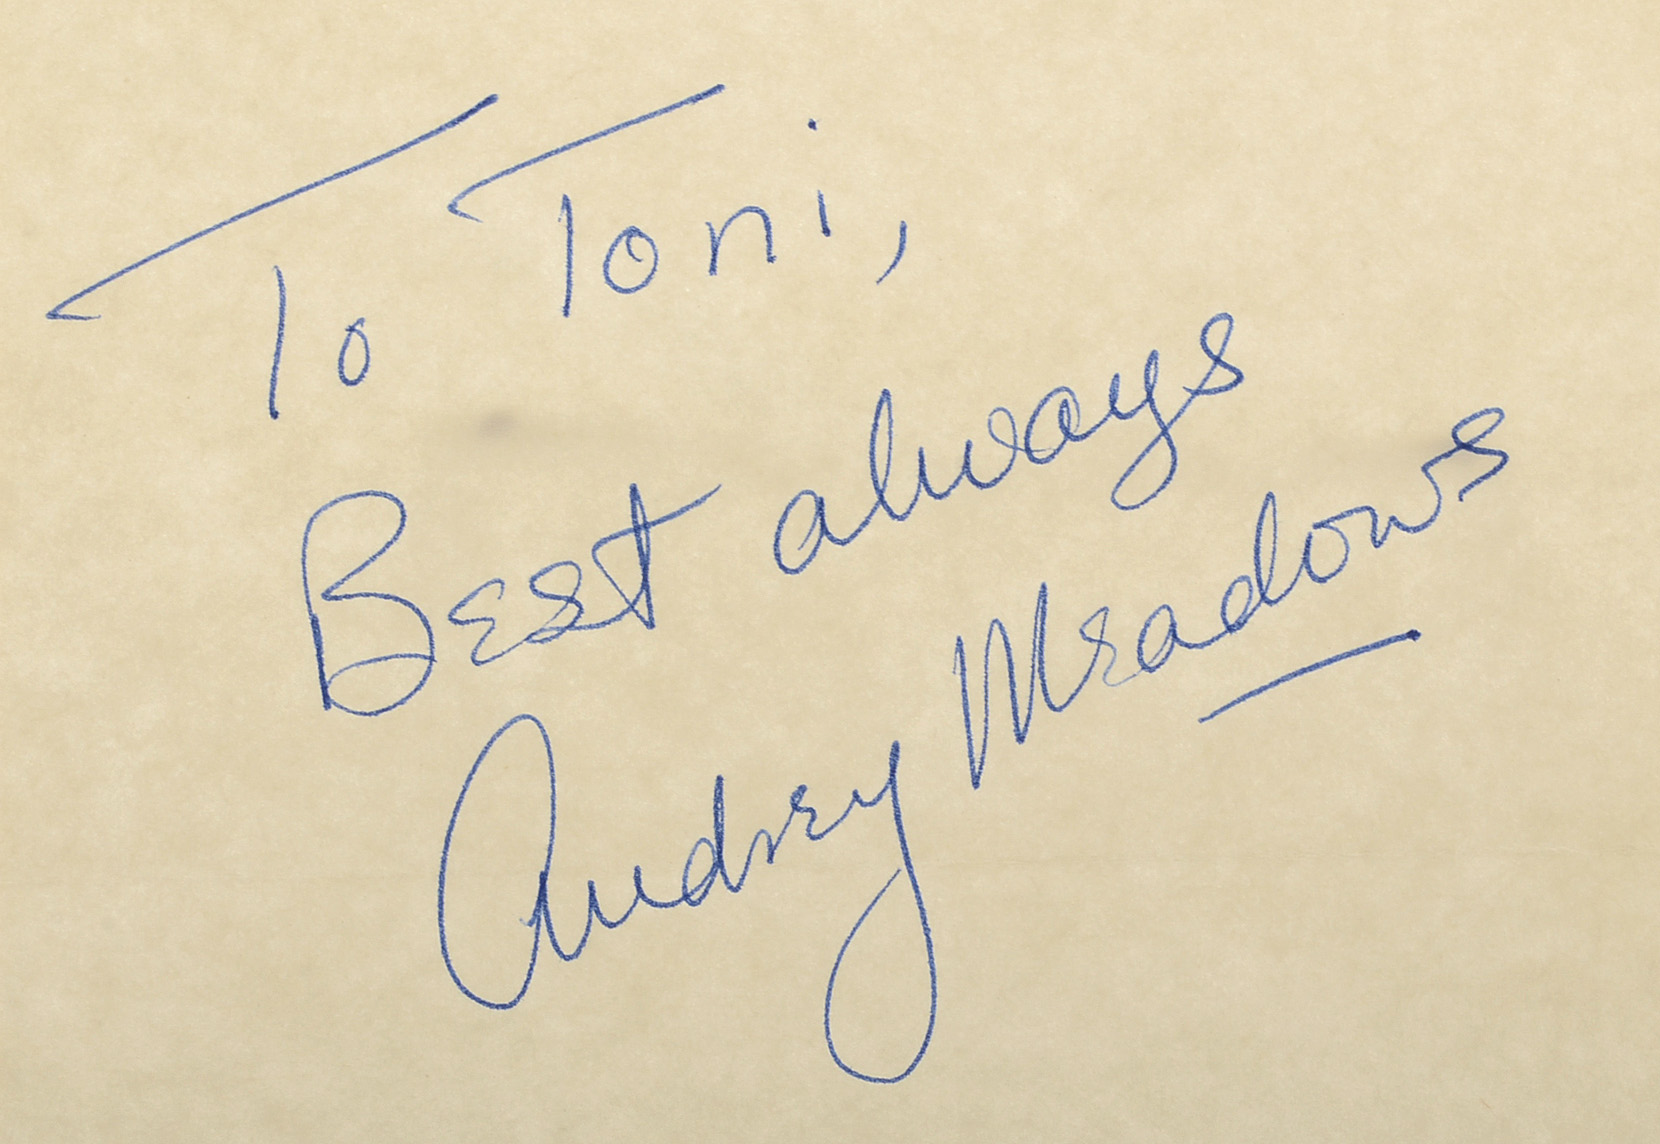 To Toni,
Best always
Audrey Meadows